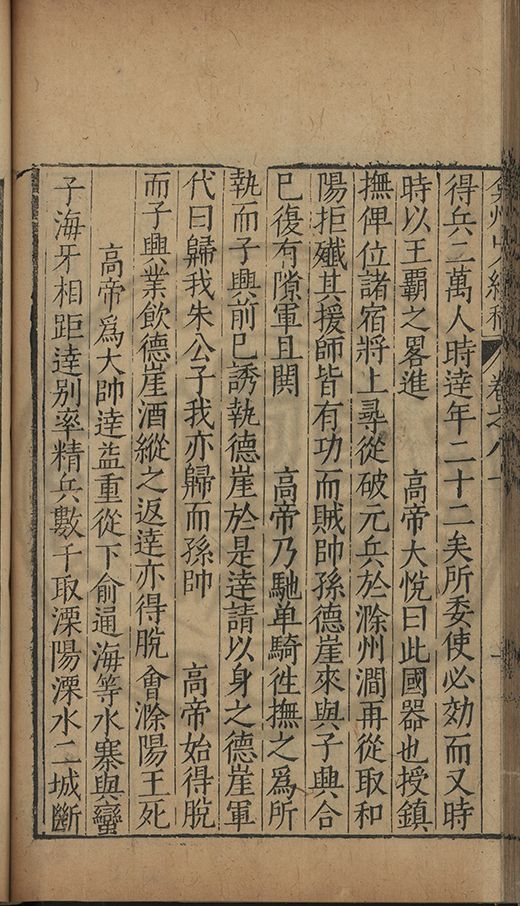 弇州山人續稿 卷之八
得兵二萬人時達年二十二矣所委使必効而又時
時以王霸之畧進 高帝大悅曰此國器也授鎮
撫俾位諸宿將上尋從破元兵於滁州澗再從取和
陽拒殲其援師皆有功而賊帥孫德崖來與子興合
已復有隙軍且鬨 高帝乃馳单騎徃撫之爲所
執而子興前已誘執德崖於是達請以身之德崖軍
代曰歸我朱公子我亦歸而孫帥 高帝始得脫
而子興業飲德崖酒縱之返達亦得脫會滁陽王死
高帝爲大帥達益重從下俞通海等水寨與蠻
子海牙相距達别率精兵數千取溧陽溧水二城斷